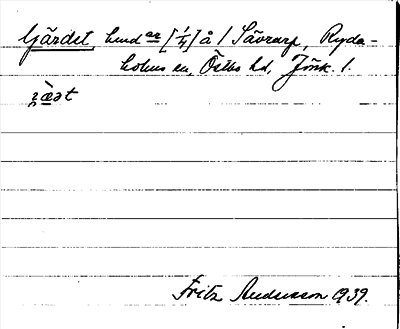 Gärdet, hmd är [1/4] å / Sävrarp, Ryda-
holms sn, Östbo hd, Jönk. l.
Fritz Andersson 1939.